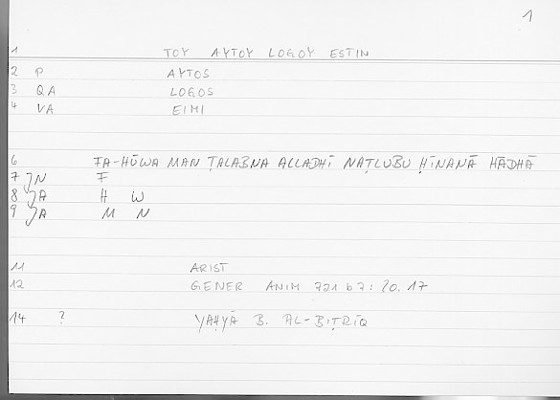 1
1 TOY AYTOY LOGOY ESTIN
2 P AYTOS
3 QA LOGOS
4 VA EIMI
6 FA-HŪWA MAN ṬALABNA ALLADHĪ NAṬLUBU ḤĪNANĀ HĀDHĀ
7 JN F
8 JA H W
9 JA M N
11 ARIST
12 GENER ANIM 721 b 7 : 20.17
14 ? YAḤYĀ B. AL-BIṬRĪQ